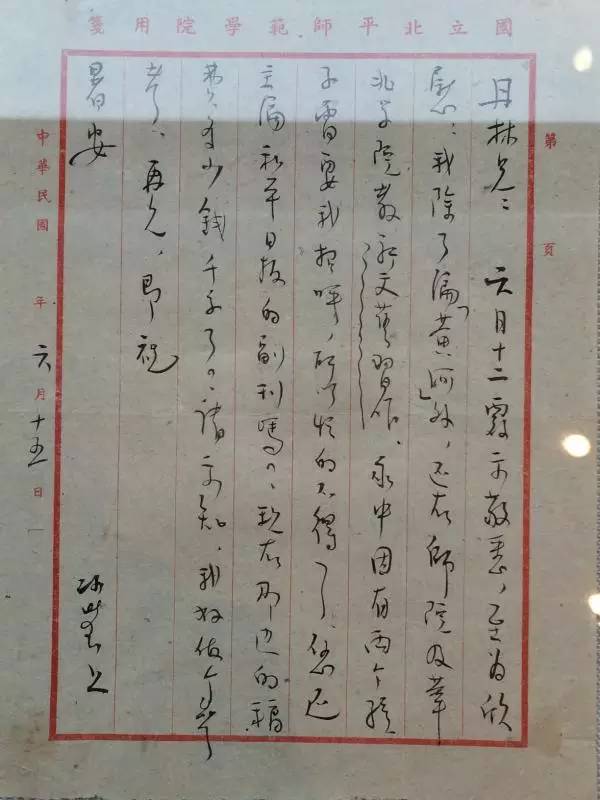 國立北平師範學院用箋
第 頁
丹林兄：六月十二覆示敬悉，至为欣
慰；我除了编「黄河」外，还在師院及華
北学院教新文藝習作、家中因有两个孩
子需要我招呼，所以忙的不得了，您还
主编和平日报的副刊嗎？现在那边的稿
费多少錢千字了？請示知，我好做个參
考、再见，即祝
暑安
冰莹上
中華民國 年 六月十五日